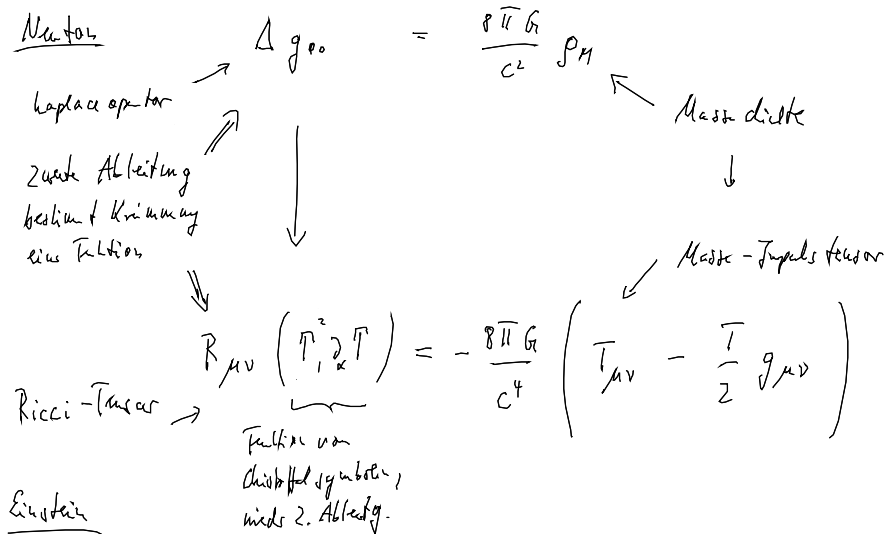 Newton
Δ g₀₀ = 8πG/c² ρ_M
Laplace operator
Massendichte
Zweite Ableitung
bestimmt Krümmung
eine Funktion
Masse-Impulstensor
R_μν (Γ², ∂_α Γ) = - 8πG/c⁴ (T_μν - T/2 g_μν)
Ricci-Tensor
Funktion von
Christoffelsymbolen,
2. Ableitg.
Einstein